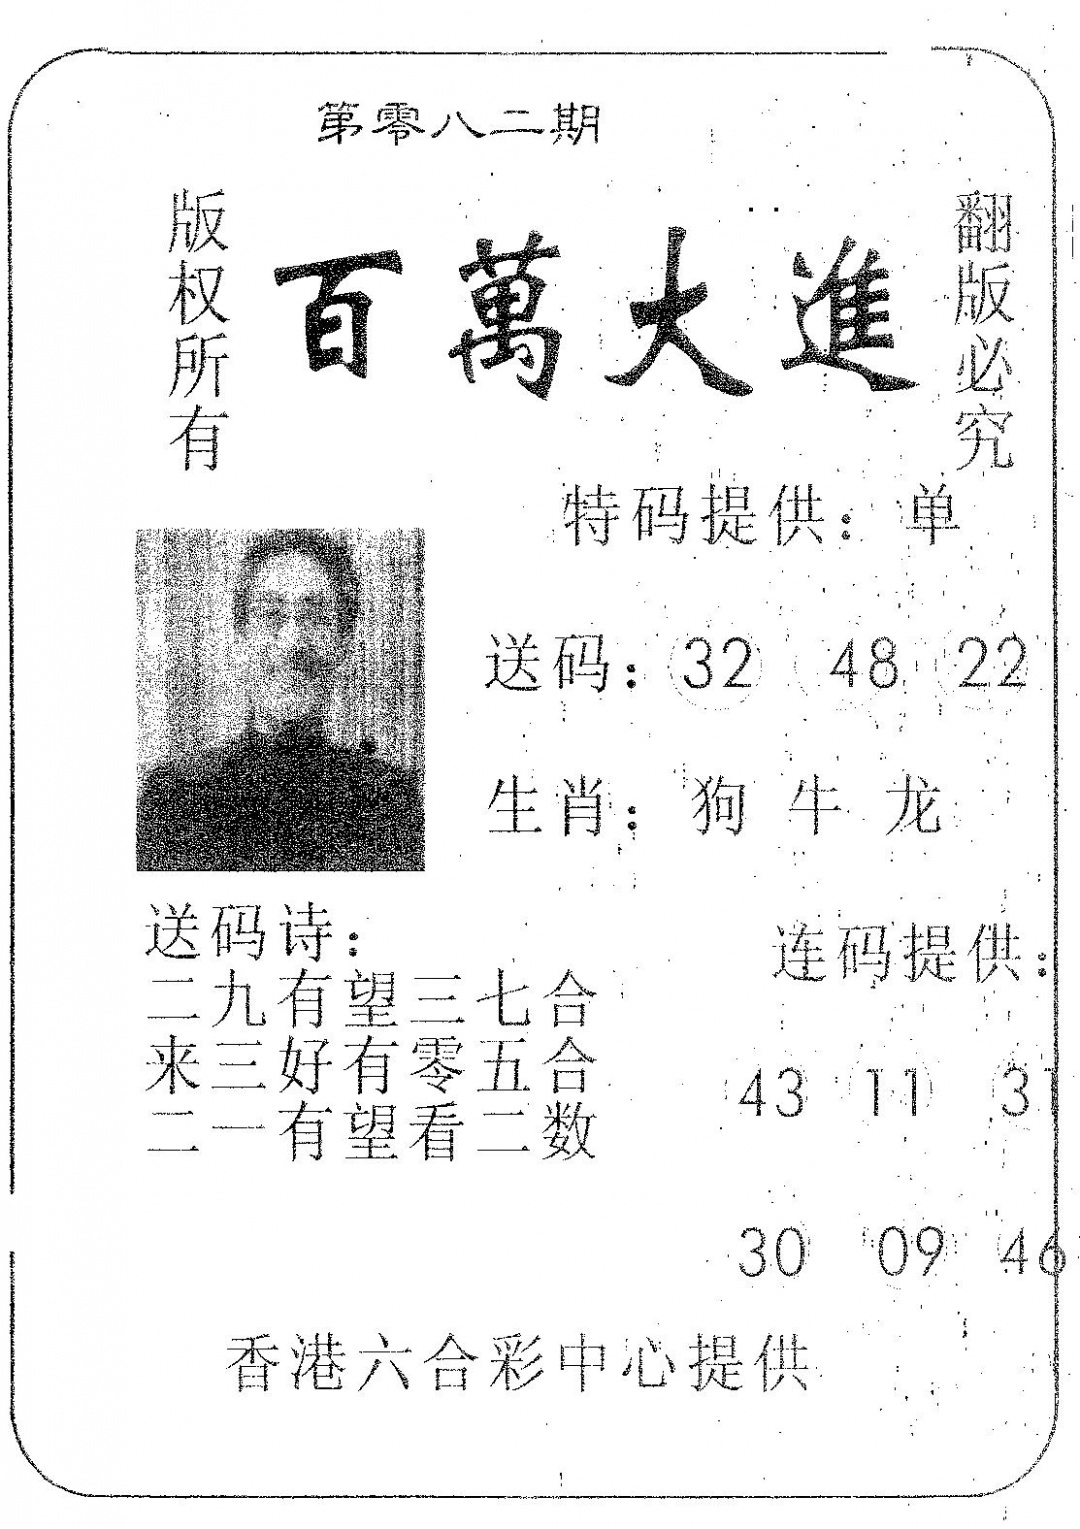 第零八二期
版权所有
百萬大進
翻版必究
特码提供：单
送码：32 48 22
生肖：狗 牛 龙
送码诗：
二九有望三七合
来三好有零五合
二一有望看二数
连码提供：
43 11 31
30 09 46
香港六合彩中心提供